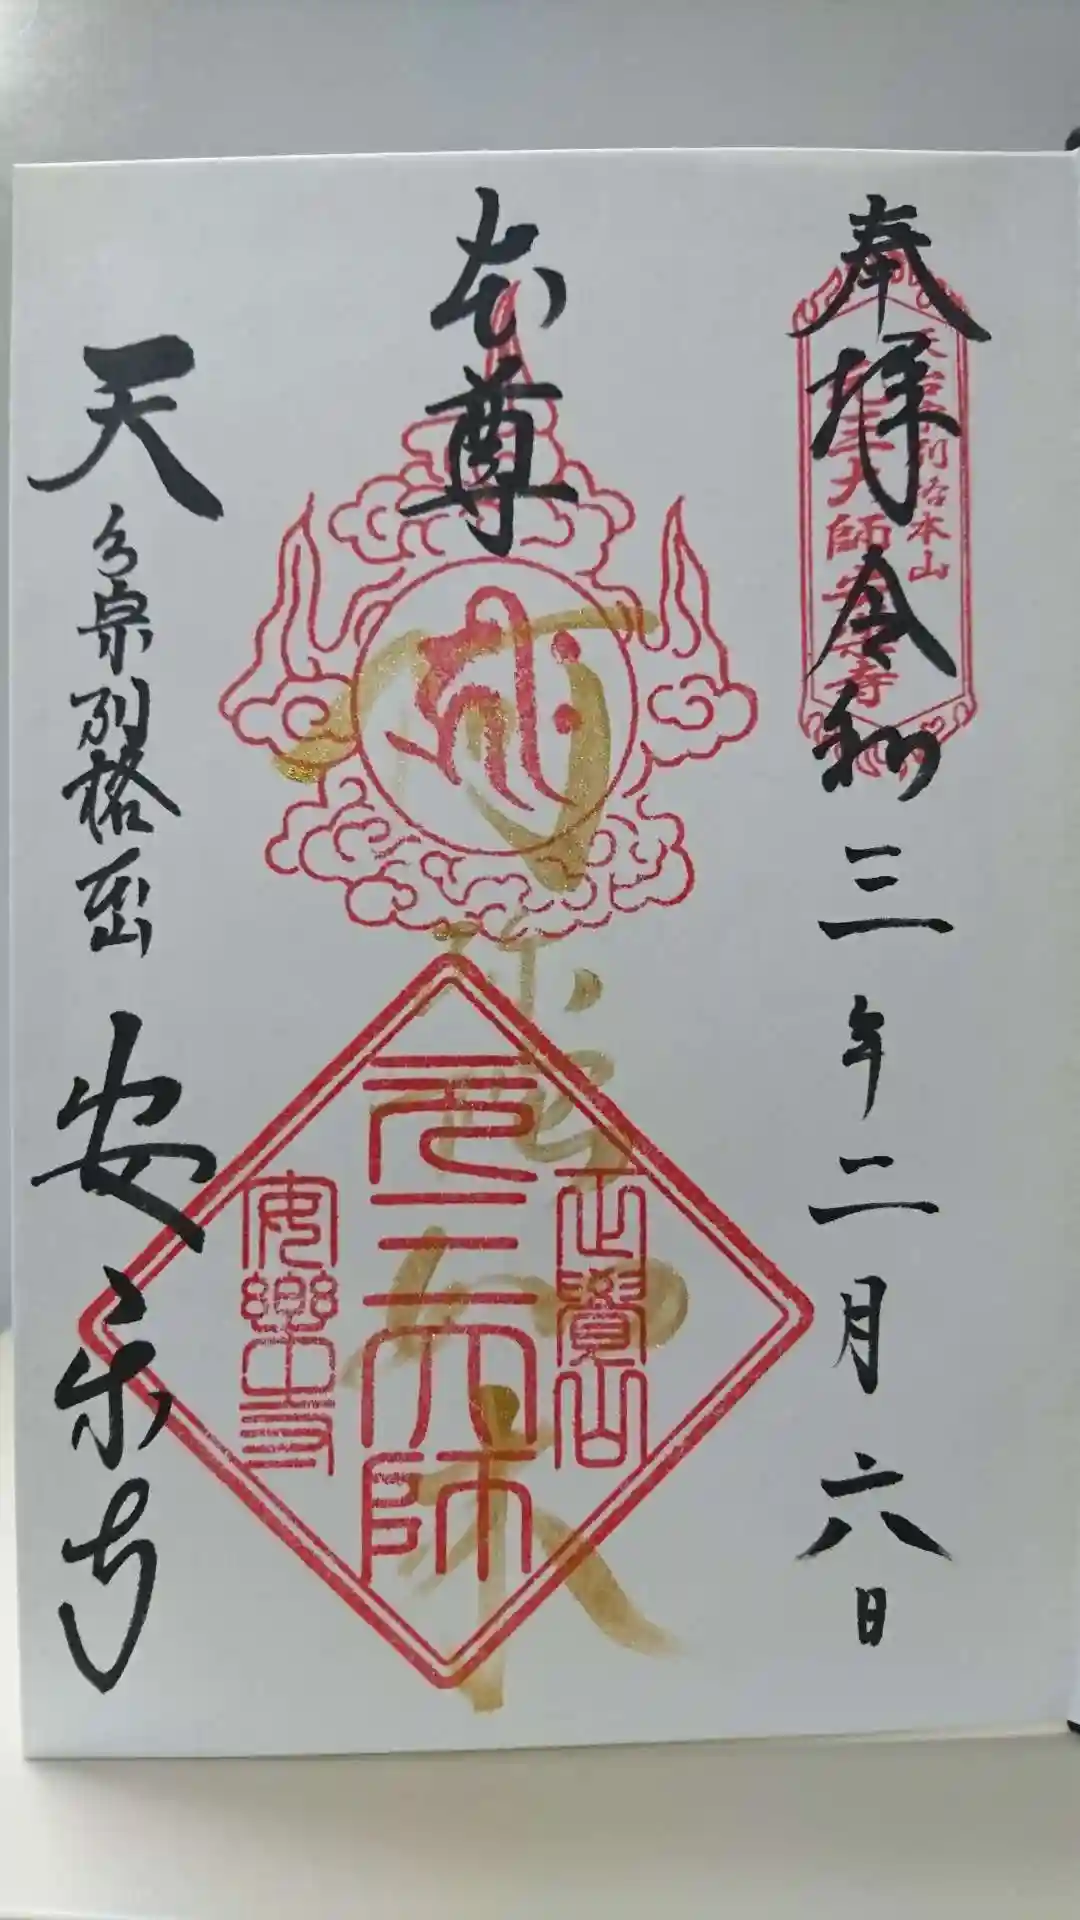 奉拝 令和三年二月六日
天台宗別格本山
元三大師安楽寺
本尊
阿弥陀如来
正覺山
元三大師
安樂寺
天台宗別格本山 安楽寺